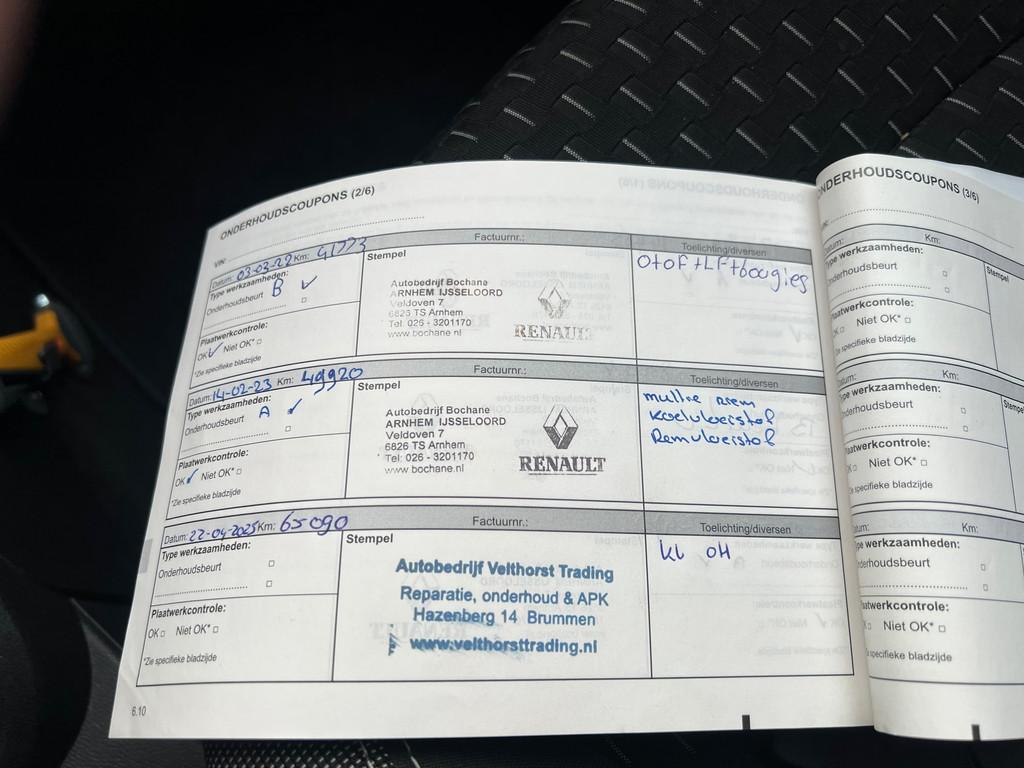 ONDERHOUDSCOUPONS (2/6)
VIN:
Datum: 03-03-22 Km: 41773
Factuurnr.:
Type werkzaamheden:
Onderhoudsbeurt B ✓
Plaatwerkcontrole:
OK ✓ Niet OK*
*Zie specifieke bladzijde
Stempel
Autobedrijf Bochane
ARNHEM IJSSELOORD
Veldoven 7
6826 TS Arnhem
Tel: 026 - 3201170
www.bochane.nl
RENAULT
Toelichting/diversen
O+OF+LF+bougies
Datum: 14-02-23 Km: 49920
Factuurnr.:
Type werkzaamheden:
Onderhoudsbeurt A ✓
Plaatwerkcontrole:
OK ✓ Niet OK*
*Zie specifieke bladzijde
Stempel
Autobedrijf Bochane
ARNHEM IJSSELOORD
Veldoven 7
6826 TS Arnhem
Tel: 026 - 3201170
www.bochane.nl
RENAULT
Toelichting/diversen
multie riem
Koelvloeistof
Remvloeistof
Datum: 22-04-2025 Km: 65090
Factuurnr.:
Type werkzaamheden:
Onderhoudsbeurt
Plaatwerkcontrole:
OK Niet OK*
*Zie specifieke bladzijde
Stempel
Autobedrijf Velthorst Trading
Reparatie, onderhoud & APK
Hazenberg 14 Brummen
www.velthorsttrading.nl
Toelichting/diversen
KL OH
6.10
ONDERHOUDSCOUPONS (3/6)
VIN:
Datum: Km:
Type werkzaamheden:
Onderhoudsbeurt
Plaatwerkcontrole:
Niet OK*
Zie specifieke bladzijde
Stempel
Datum: Km:
Type werkzaamheden:
Onderhoudsbeurt
Plaatwerkcontrole:
Niet OK*
Zie specifieke bladzijde
Stempel
Datum: Km:
Type werkzaamheden:
Onderhoudsbeurt
Plaatwerkcontrole:
Niet OK*
Zie specifieke bladzijde